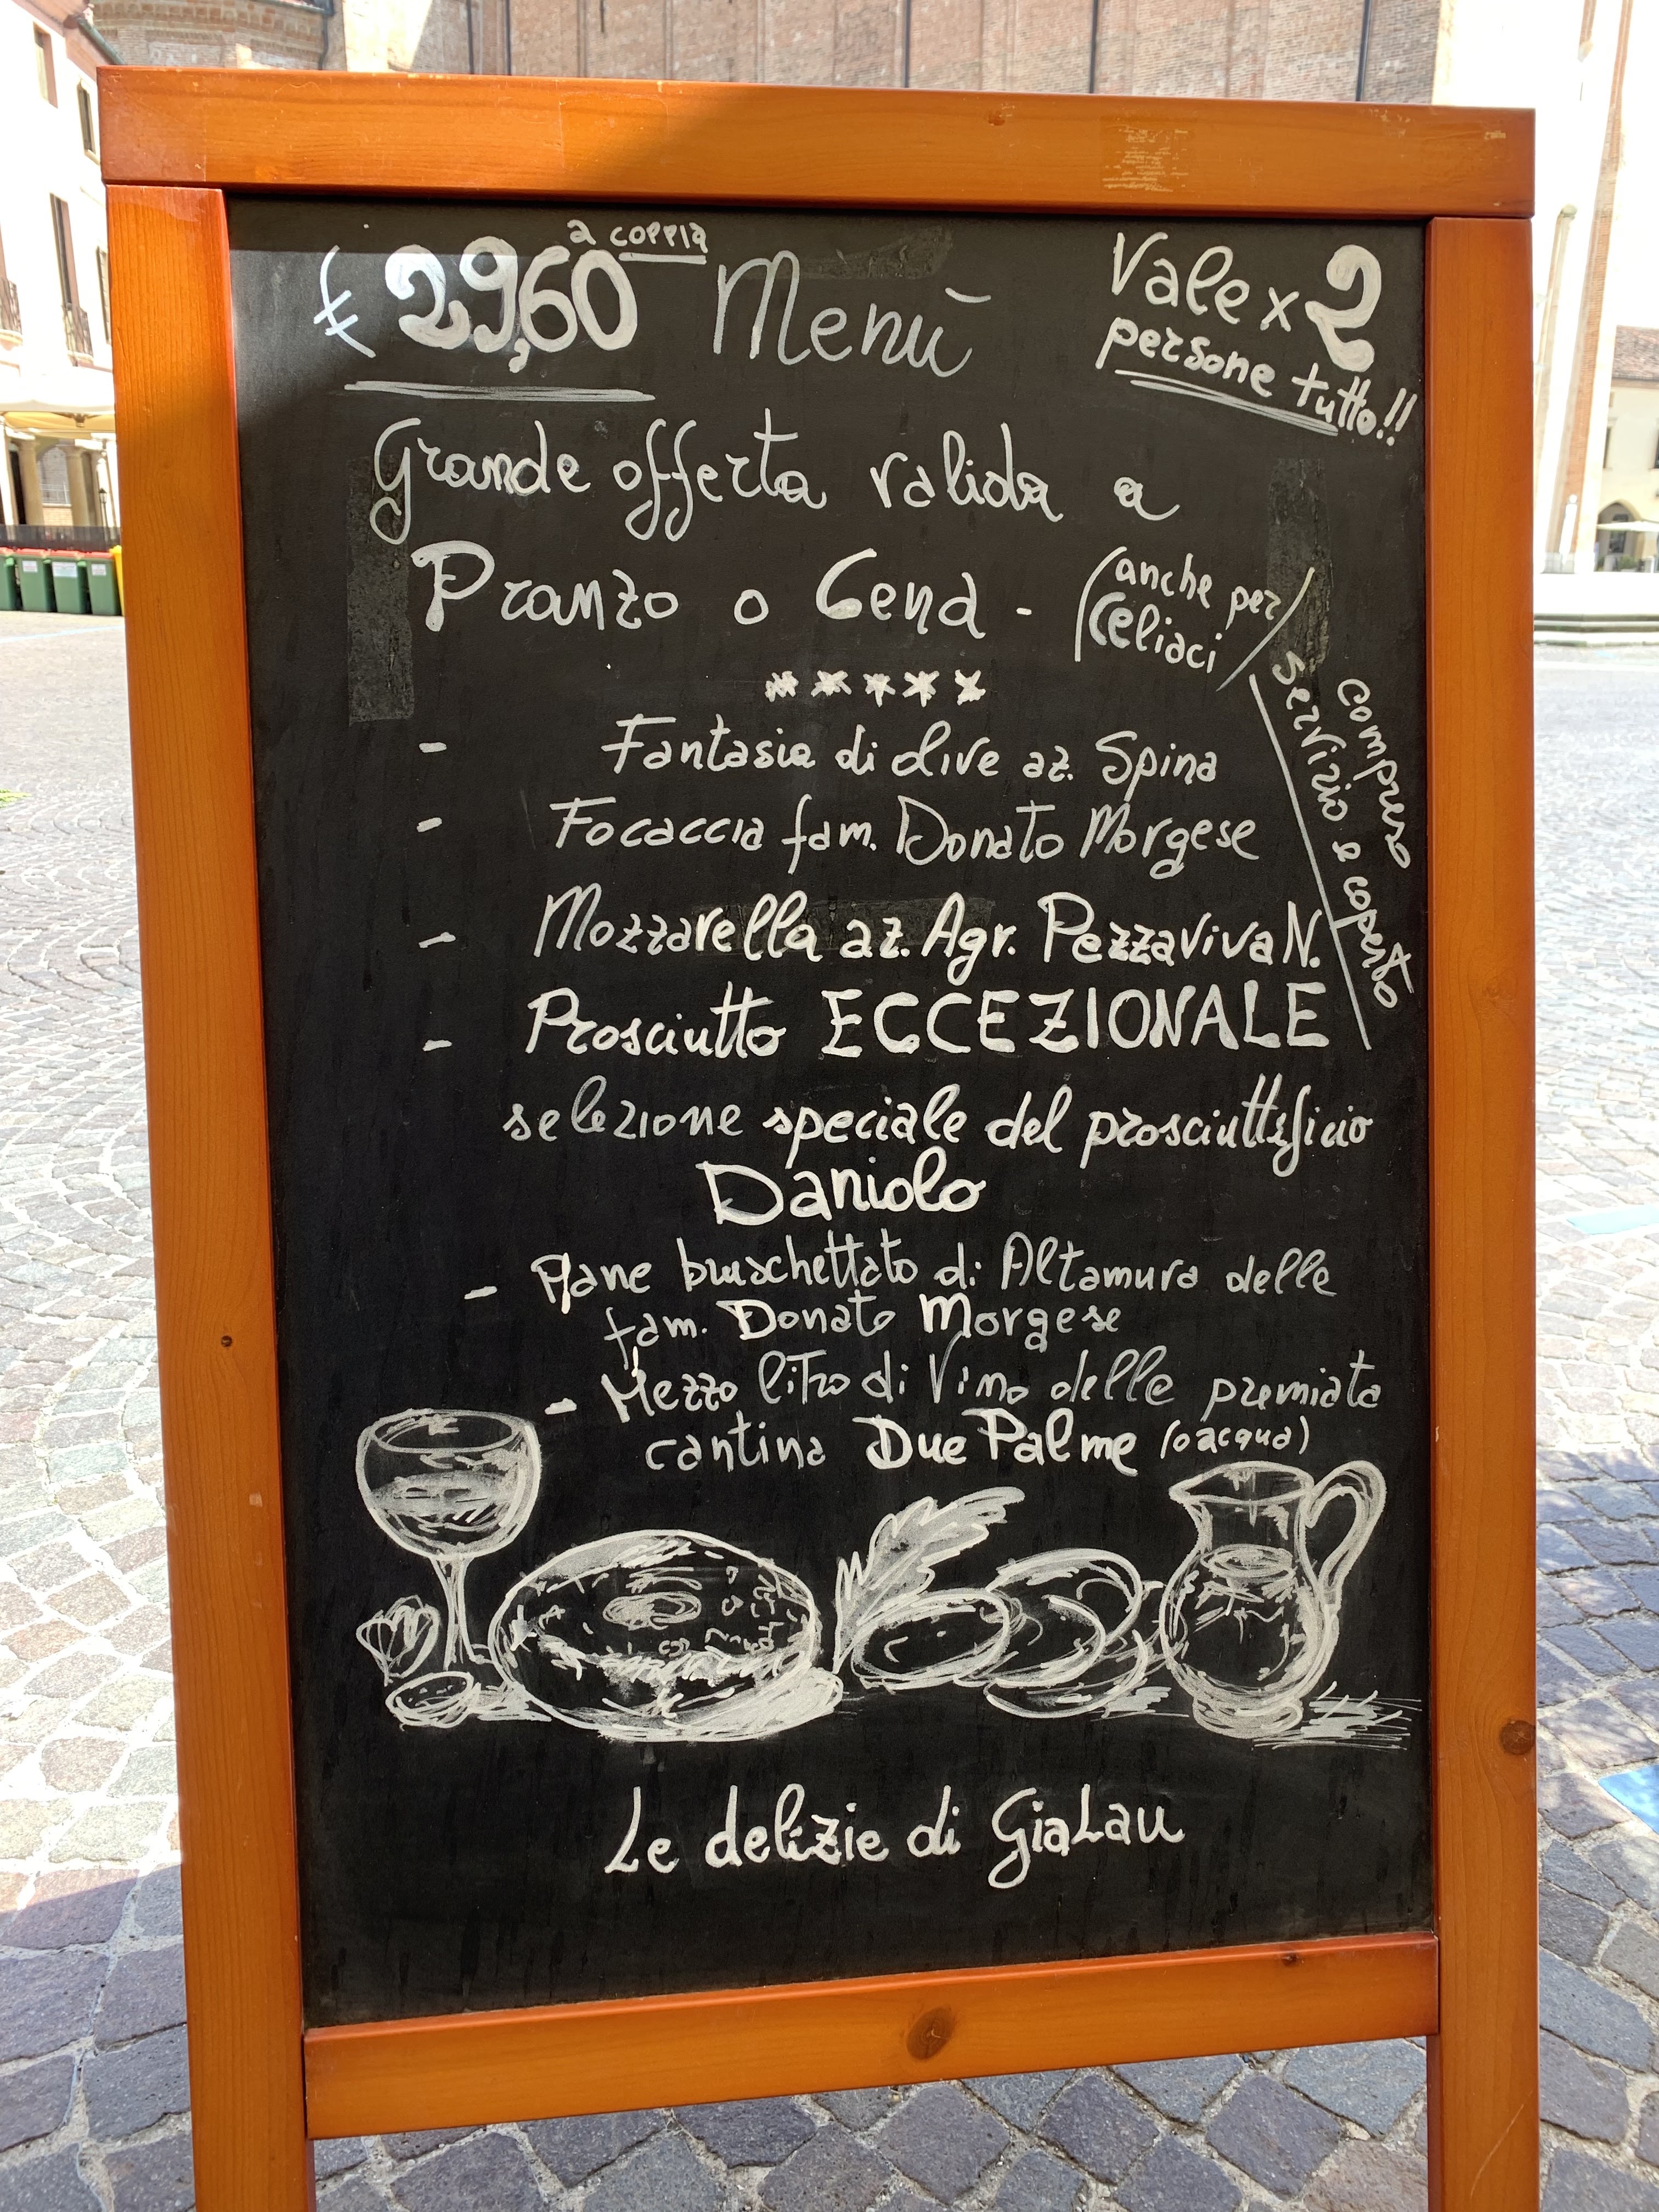 € 29,60 a coppia Menù
Vale x 2
persone tutto!!
Grande offerta valida a
Pranzo o Cena - (anche per
Celiaci)
compreso
servizio e coperto
*****
- Fantasia di olive az. Spina
- Focaccia fam. Donato Morgese
- Mozzarella az. Agr. Pezzaviva N.
- Prosciutto ECCEZIONALE
selezione speciale del prosciuttificio
Daniolo
- Pane bruschettato di Altamura delle
fam. Donato Morgese
- Mezzo litro di Vino delle premiata
cantina Due Palme (o acqua)
Le delizie di GiaLau